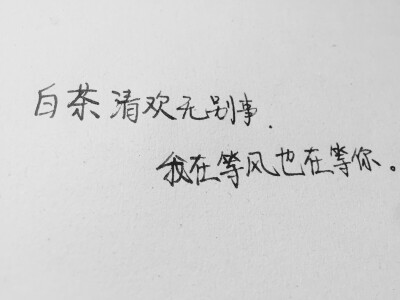 白茶清欢无别事.
我在等风也在等你。